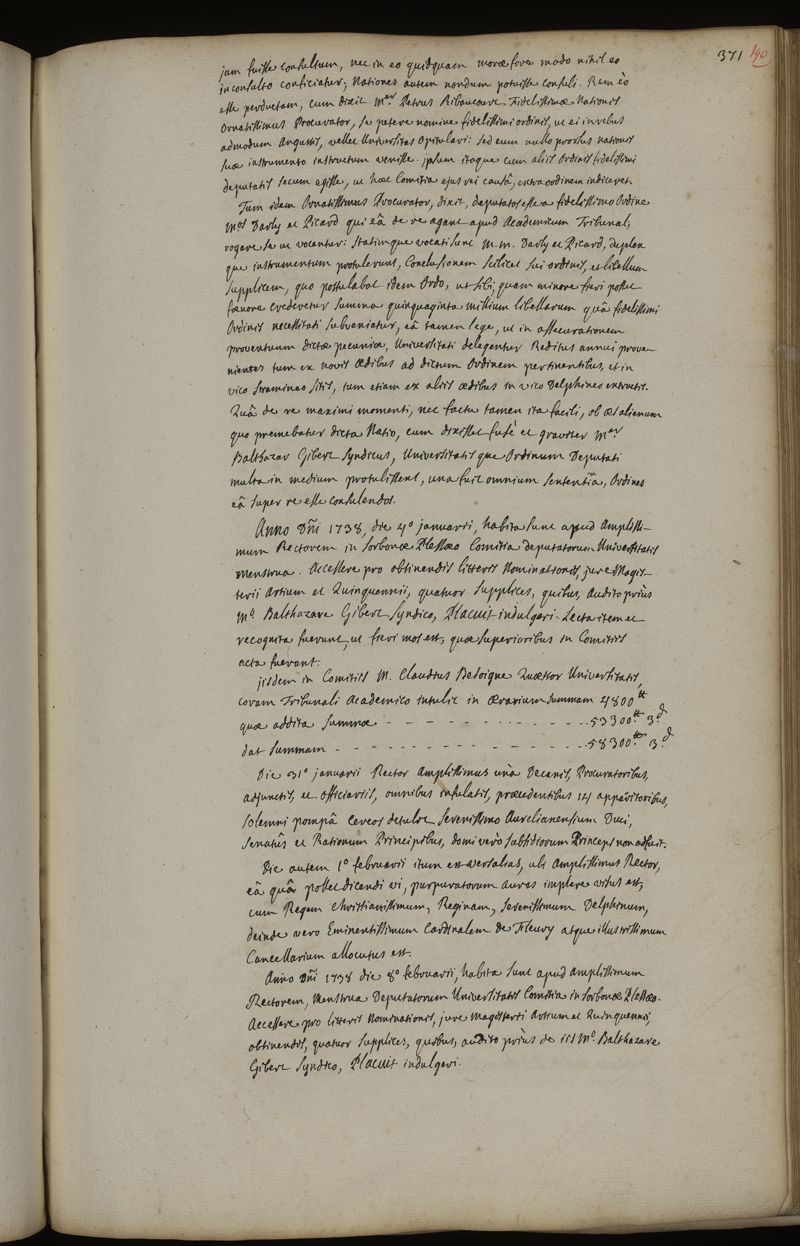 371 190
jam fuisse consultum, nec in eo quidquam moræ fore modo nihil eo
inconsulto conficiatur; Nationes autem nondum potuisse consuli. Rem eò
esse perductam, cum dixit Mer Petrus Ribaucourt Fidelissimæ Nationis
Ornatissimus Procurator, se petere nomine fidelissimi ordinis, ut ei in rebus
admodum Angustis, vellet Universitas opitulari: sed eum nullo prorsus nationis
suæ instrumento instructum venisse. ipsum itaque cum aliis Ordinis fidelissimi
deputatis secum egisse, ut hæc Comitia ejus rei causâ, extra ordinem indiceret.
Tum idem Ornatissimus Procurator, dixit, deputatos esse a fidelissimo Ordine
Mros Darly et Picard qui eâ de re agant apud Academicum Tribunal,
rogare se ut vocentur: Statimque vocati sunt M.m. Darly et Picard, duplex
que instrumentum protulerunt, Conclusionem scilicet sui ordinis, et libellum
supplicem, quo postulabat idem Ordo, ut sibi, quam minore fieri posset
fœnore crederetur summa quinquaginta millium libellarum quâ fidelissimi
Ordinis necessitati subveniatur, eâ tamen lege, ut in assecurationem
proventuum dictæ pecuniæ, Universitati delegentur Reditus annui prove-
nientes tum ex novis ædibus ad dictum Ordinem pertinentibus, et in
vico stramineo sitis, tum etiam ex aliis ædibus in vico Delphineo extructis.
Quâ de re maximi momenti, nec factu tamen ita facili, ob æs alienum
quo premebatur dicta Natio, cum dixisset fusè et graviter Mer
Balthazar Gibert Syndicus, Universitatisque Ordinum Deputati
multa in medium protulissent, una fuit omnium sententia, Ordines
eâ super re esse consulendos.
Anno Dni 1738, die 4º januarii, habita sunt apud Amplissi-
mum Rectorem in Sorbonæ Plessæo Comitia deputatorum Universitatis
menstrua. Accessere pro obtinendis litteris Nominationis, jure Magis-
terii Artium et Quinquennii, quatuor supplices, quibus, Audito priùs
Mo. Balthazare Gibert Syndico, Placuit indulgeri. Lecta item et
recognita fuerunt, ut fieri mos est, quæ superioribus in Comitiis
acta fuerant.
jisdem in Comitiis M. Claudius Besoigne Quæstor Universitatis,
coram Tribunali Academico intulit in ærarium summam 4800 tt
quæ addita summæ - - - - - - - - - - - 53300 tt 3 d
dat summam - - - - - - - - - - - - - - 58300 tt 3 d
Die 31º januarii Rector Amplissimus unà Decanis, Procuratoribus,
adjunctis, et officiariis, omnibus insulatis, præcedentibus 14 apparitoribus,
solemni pompâ cereos detulit Serenissimo Aurelianensium Duci,
Senatûs et Rationum Principibus, domi verò subsidiorum Princeps non adfuit.
Die autem 1º februarii itum est Versalias, ubi Amplissimus Rector,
eâ quâ pollet dicendi vi, purpuratorum aures implere visus est,
cum Regem Christianissimum, Reginam, Serenissimum Delphinum,
deinde vero Eminentissimum Cardinalem de Fleury atque illustrissimum
Cancellarium allocutus est.
Anno Dni 1738 die 8º februarii, habita sunt apud Amplissimum
Rectorem, Menstrua Deputatorum Universitatis Comitia in Sorbonæ Plessæo.
Accessere pro litteris Nominationis, jure Magisterii Artium et Quinquennii,
obtinendis, quatuor supplices, quibus, audito priùs de iis Mo. Balthazare
Gibert Syndico, Placuit indulgeri.